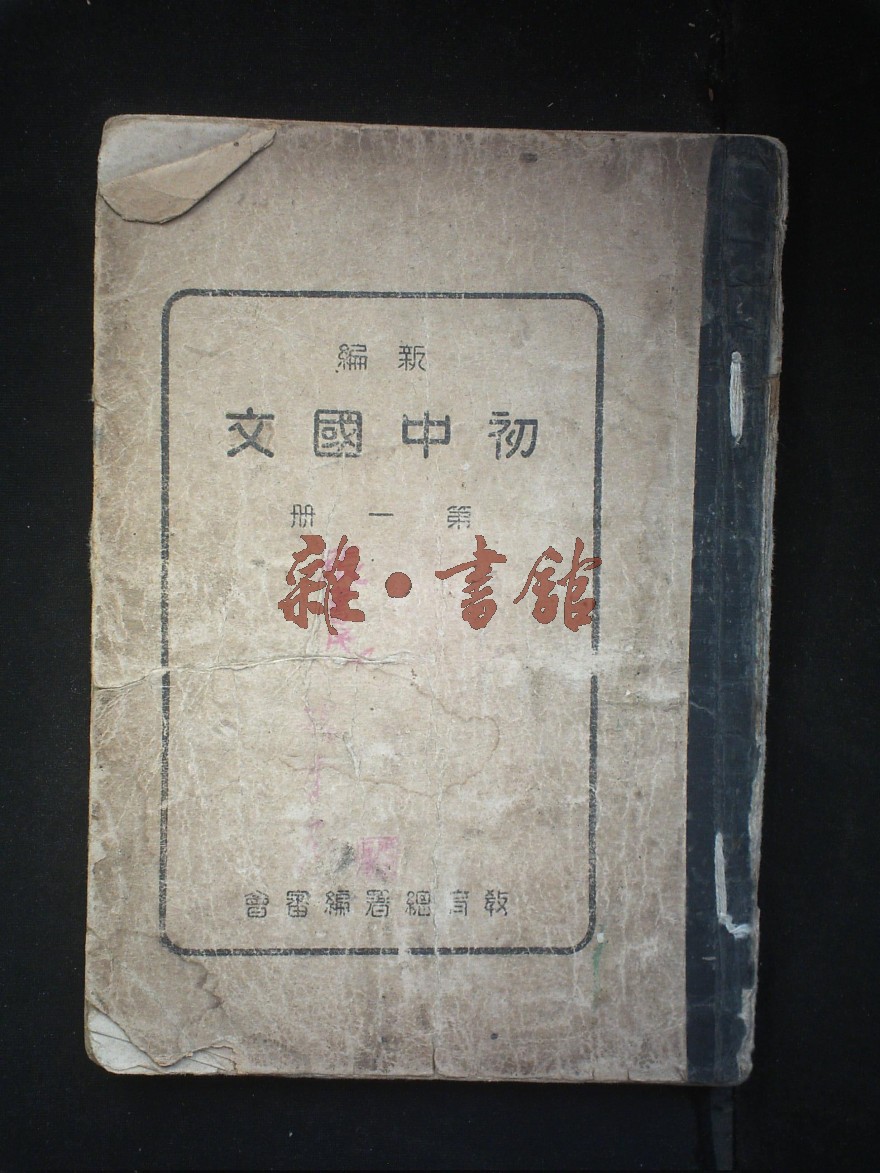 新編
初中國文
第一册
雜·書館
教育總署編審會